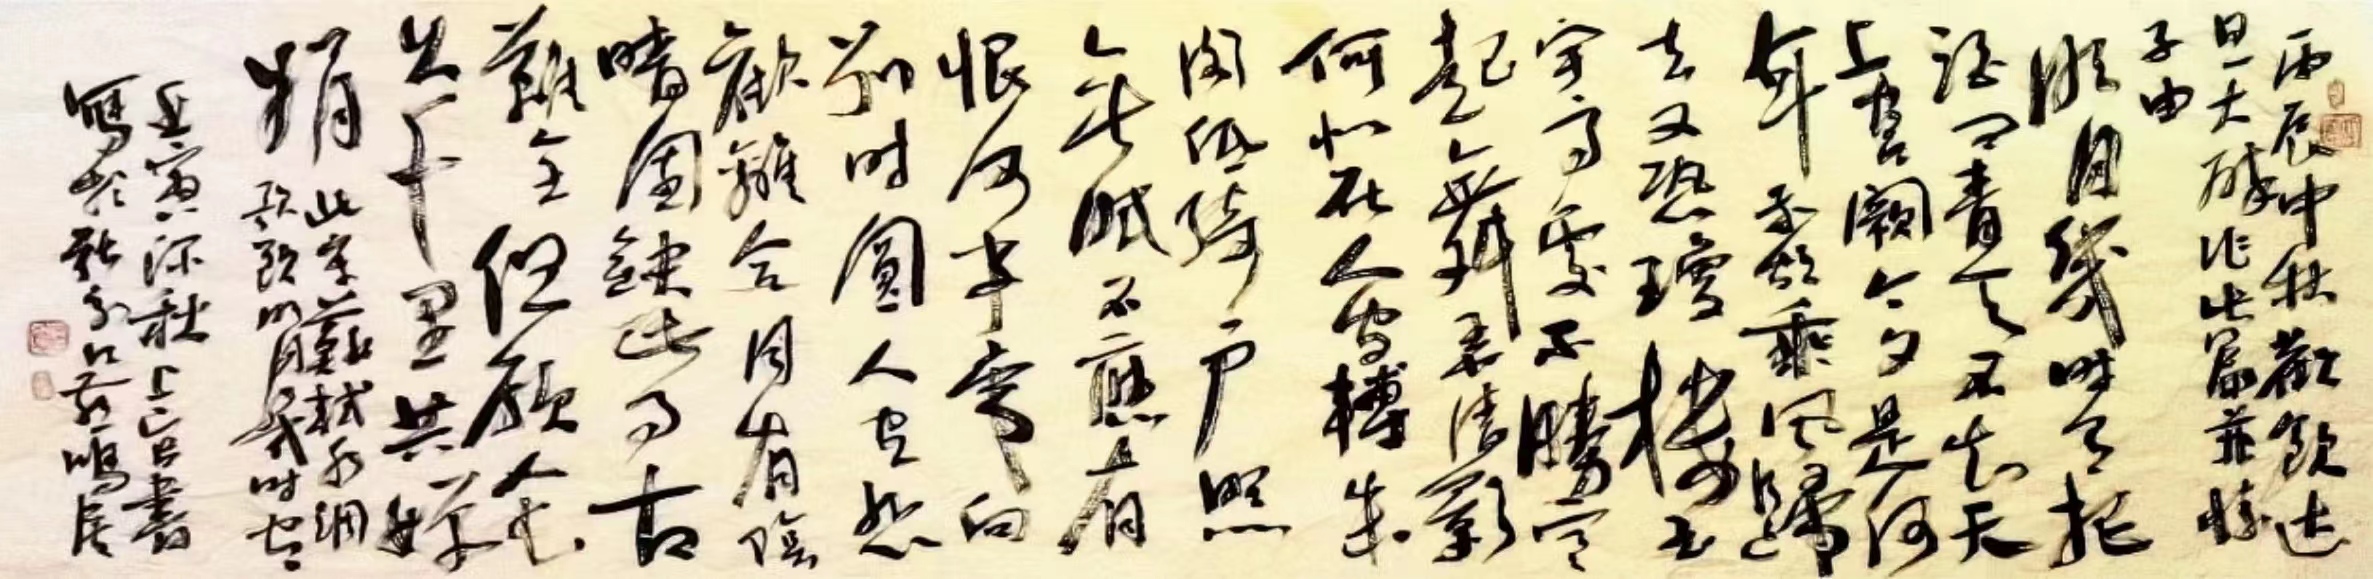 丙辰中秋歡飲达
旦大醉作此篇兼懷
子由
明月幾時有把
酒问青天不知天
上宫阙今夕是何
年我欲乘风歸
去又恐瓊楼玉
宇高处不勝寒
起舞弄清影
何似在人间轉朱
阁低绮户照
無眠不應有
恨何事長向
别时圆人有悲
歡離合月有陰
晴圆缺此事古
難全但願人長
久千里共嬋
娟
此宋蘇軾水调
歌頭明月幾时有
壬寅深秋上吉書
寫於鳴居